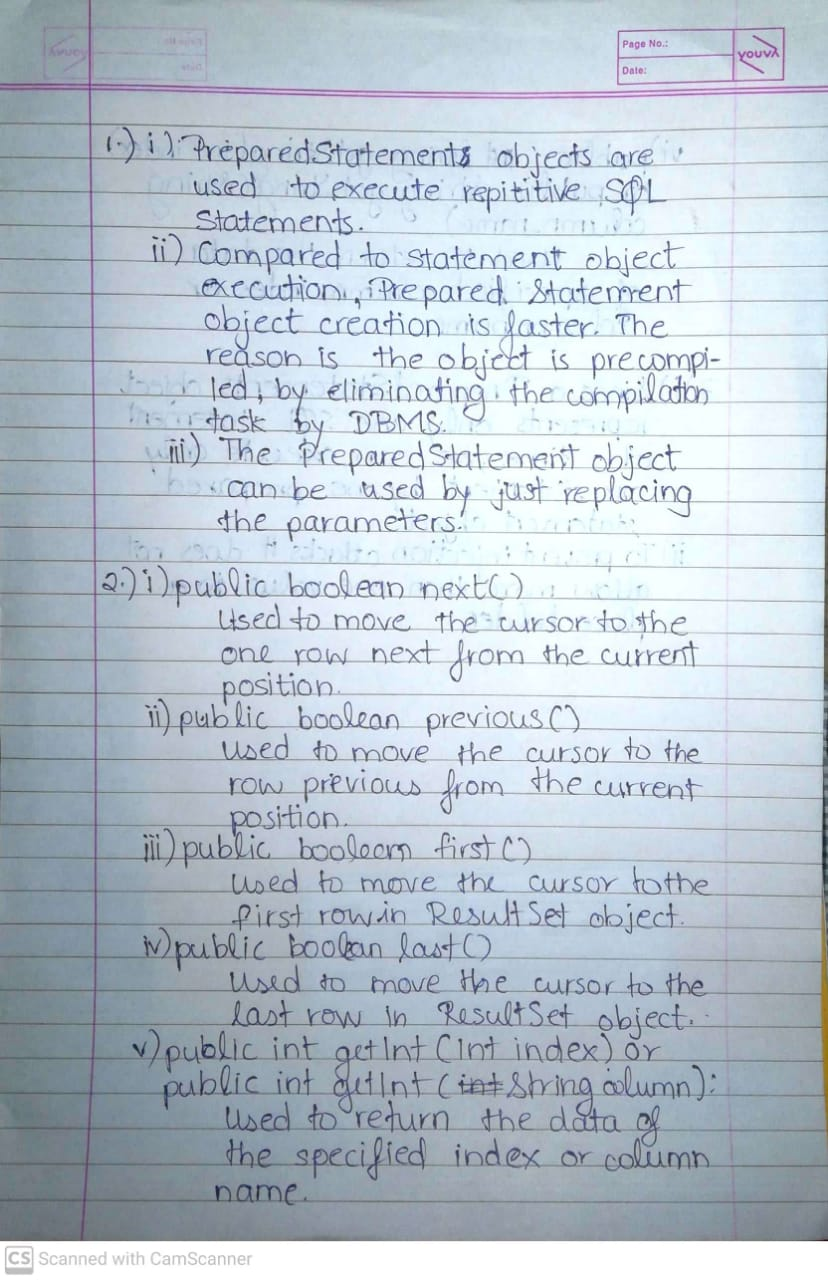 Page No.:
Date:
YOUVA
1.) i) PreparedStatements objects are
used to execute repititive SQL
Statements.
ii) Compared to statement object
execution, Prepared Statement
object creation is faster. The
reason is the object is precompi-
led, by eliminating the compilation
task by DBMS.
iii) The PreparedStatement object
can be used by just replacing
the parameters.
2.) i) public boolean next()
Used to move the cursor to the
one row next from the current
position.
ii) public boolean previous()
Used to move the cursor to the
row previous from the current
position.
iii) public boolean first()
Used to move the cursor to the
first row in ResultSet object.
iv) public boolean last()
Used to move the cursor to the
last row in ResultSet object.
v) public int getInt (int index) or
public int getInt (int String column):
Used to return the data of
the specified index or column
name.
CS Scanned with CamScanner